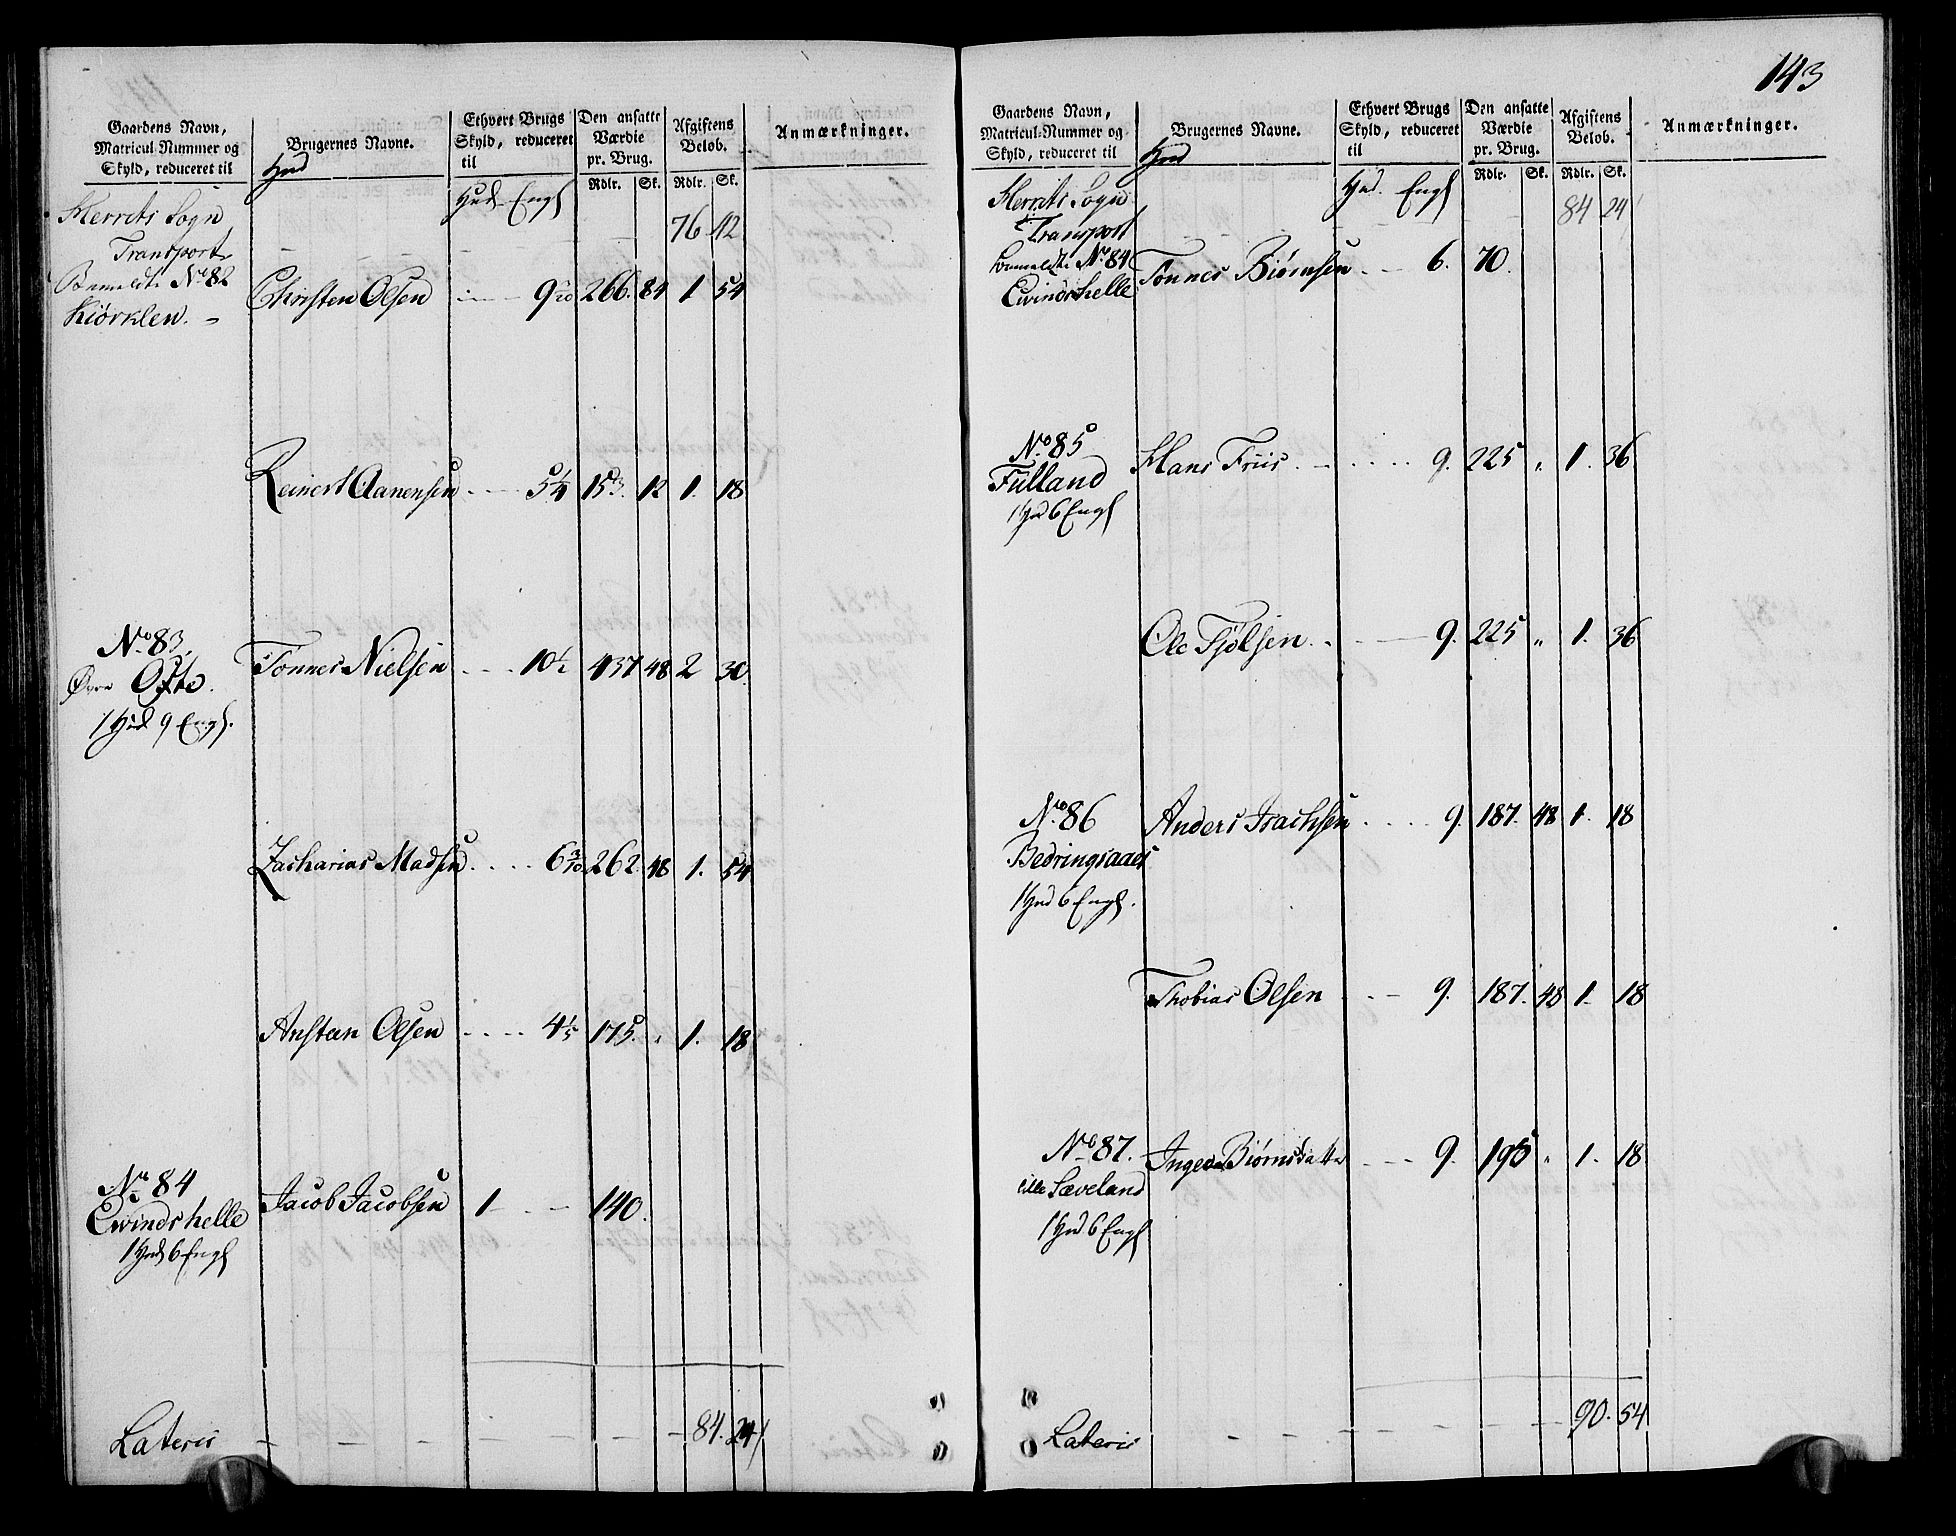 Gaardens Navn, Matricul-Nummer og Skyld, reduceret til
Brugernes Navne.
Ethvert Brugs Skyld, reduceret til
Den ansatte Værdie pr. Brug.
Afgiftens Beløb.
Anmærkninger.
Rdlr. Sk. Rdlr. Sk.
Hud Engl
Herrets Sogn
Transport 76 42
Bemeldte No 82 Christen Olsen 266. 84 1 54
Kiörklen.
Reinert Aanensen 5¼ 153. 12 1. 18
No 83. Tönnes Nielsen 10½ 437 48 2 30.
Øvre Ofte.
1 Hud 9 Engl.
Zacharias Madsen 6 3/10 262 48 1. 54
Anstæn Olsen 4 1/5 175. " 1. 18
No 84 Jacob Jacobsen 1 140.
Evindshelle
1 Hud 6 Engl
Lateris 84. 24
143
Gaardens Navn, Matricul-Nummer og Skyld, reduceret til
Brugernes Navne.
Ethvert Brugs Skyld, reduceret til
Den ansatte Værdie pr. Brug.
Afgiftens Beløb.
Anmærkninger.
Rdlr. Sk. Rdlr. Sk.
Hud. Engl
Herrets Sogn 84 24
Transport
bemeldte No 84 Tönnes Biörnsen 6. 70.
Evindshelle
No 85 Hans Friis 9. 225 " 1. 36
Fulland
1 Hud 6 Engl
Ole Tjölsen 9. 225 " 1. 36
No 86 Anders Isachsen 9. 187. 48 1. 18
Bedringsaaes
1 Hud 6 Engl.
Thobias Olsen 9. 187. 48 1. 18
No 87. Inger Biörnsdatter 9. 195 " 1. 18
lille Sæveland
1 Hud 6 Engl
Lateris 90. 54